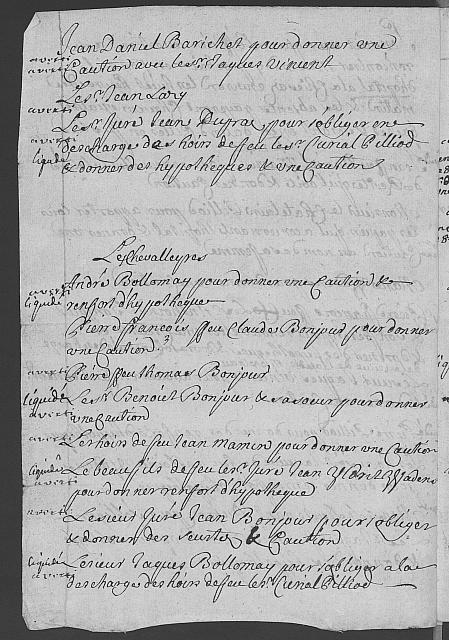 Jean Daniel Barichet pour donner vne
averti
averti
Caution avec le sr. Jaques Vincent
averti
Le sr. Jean Lary
averti
Le sr. Juré Jean Dufrae pour sobliger en
descharge des hoirs de feu le sr. Curial Pilliod
liquidé
& donner des hypotheques & vne Caution
Les Chevalleyres
averti
André Bollomay pour donner vne Caution &
liquidé
renfort dhypotheque
Pierre francois feu Claude Bonjour pour donner
vne Caution
averti
Pierre feu thomas Bonjour
liquidé
Le sr. Benoit Bonjour & sa soeur pour donner
averti
vne Caution
averti
Les hoirs de feu Jean mamin pour donner vne Caution
liquidé
Le beau fils de feu le sr. Juré Jean
averti
pour donner renfort dhypotheque
averti
Le sieur Juré Jean Bonjour pour sobliger
& donner des seurtes & Caution
liquidé
Le sieur Jaques Bollomay pour sobliger a la
averti
descharge des hoirs de feu le sr. Curial Pilliod